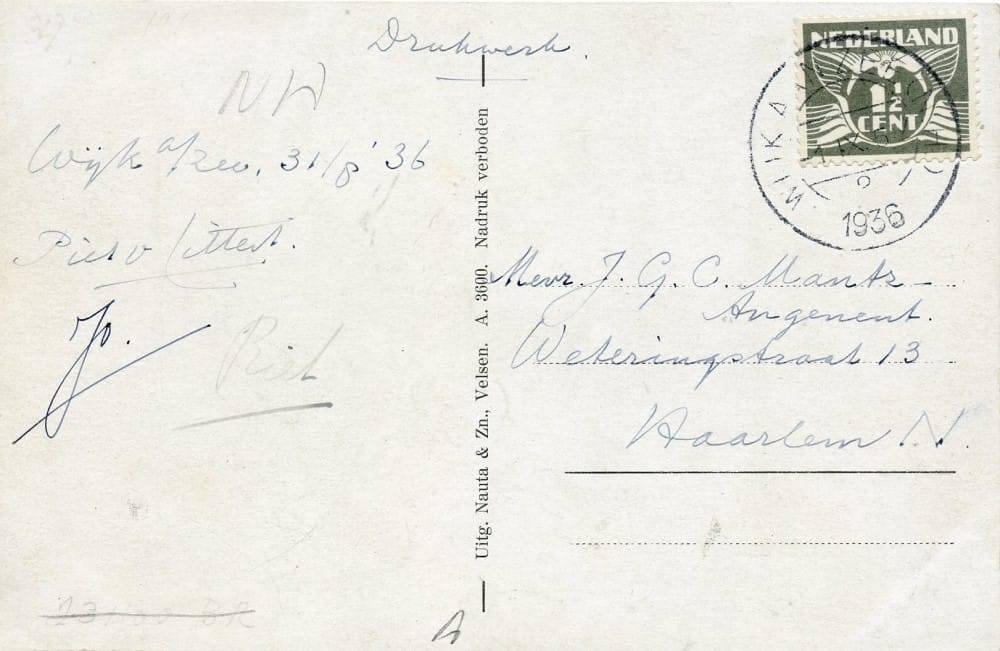 Drukwerk.
NW
Wijk a/zee, 31/8 '36
Piet v Littert.
Jo.
Piet
Uitg. Nauta & Zn., Velsen. A. 3600. Nadruk verboden
NEDERLAND
1½
CENT
WIJK AAN ZEE
1936
Mevr. J. G. C. Mantz-
Angenent.
Weteringstraat 13
Haarlem N.